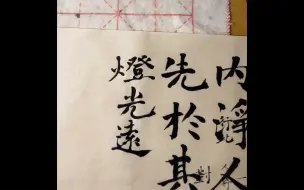 内淨人
先於其
燈光遠
對